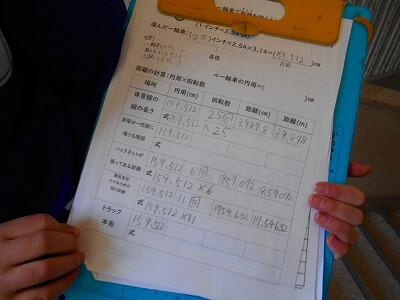 選んだ一輪車:(20)インチ×2.54×3.14=(159.512)cm
直径 円周
⇒一輪車の円周=( )cm
距離の計算:円周×回転数
場所 円周(cm) 回転数 距離(cm) 距離(m)
体育館の縦の長さ 159.512 25回 3987.8 39.878
式 159.512×25
159.512
式
バックネットが張ってある距離 159.512 6回 957.072 9.57072
式 159.512×6
159.512 11回 1754.632 17.54632
式 159.512×11
トラック半周 159.512
式